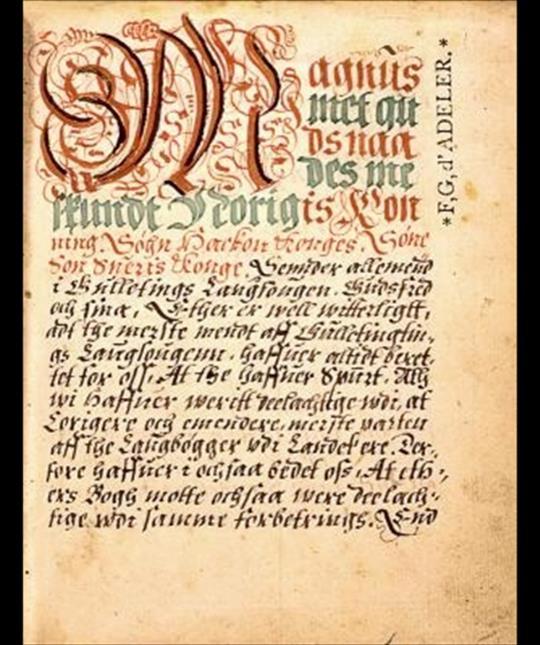 Magnus
met gu
ds naa
des me
rkundt Norigis Kon
ning Søgn Hackon Konges Søne
Søn Sueris Konge. Sennder allemend
i Gulletings Laugsougen. Gudsfred
och sina, Ether er well witterligtt,
att the meriste mendt aff Gulletingßin,
gs Laugsougenn, haffuer altidt beret,
tet for oss, At the haffuer Spurt. Att
wi haffuer werett deelachtige wdi, at
Corigere och emendere, meriste parten
aff the Laugbøgger wdi Landet ere. Der,
fore haffuer i ochsaa bedet oss, At eth,
ers Bogh motte ochsaa were deelach,
tige wdi samme forbetrings. End
*F,G,d'ADELER.*